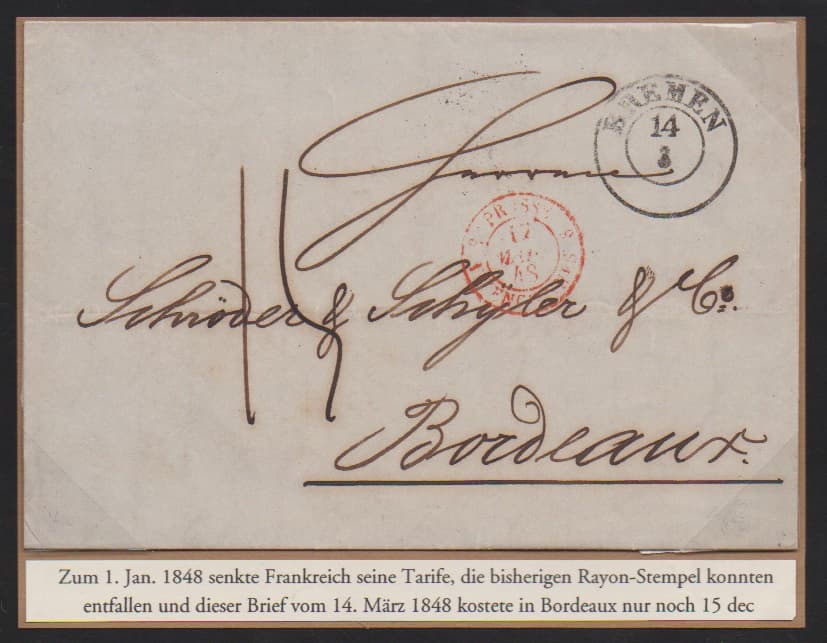 BREMEN
14
3
Herren
PRUSSE
17
MAR
48
15
Schröder & Schÿler & Co.
Bordeaux.
Zum 1. Jan. 1848 senkte Frankreich seine Tarife, die bisherigen Rayon-Stempel konnten
entfallen und dieser Brief vom 14. März 1848 kostete in Bordeaux nur noch 15 dec